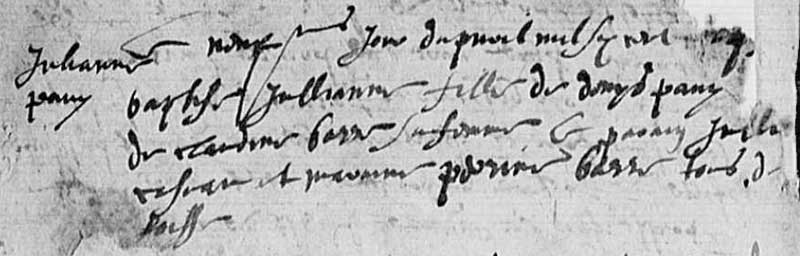 Julianne
pany
Le neufsiesme jour dapvril mil six cent
baptisee Jullianne fille de denys pany
de claudine barre sa femme le parain Julle
et maraine perrine barre tous de